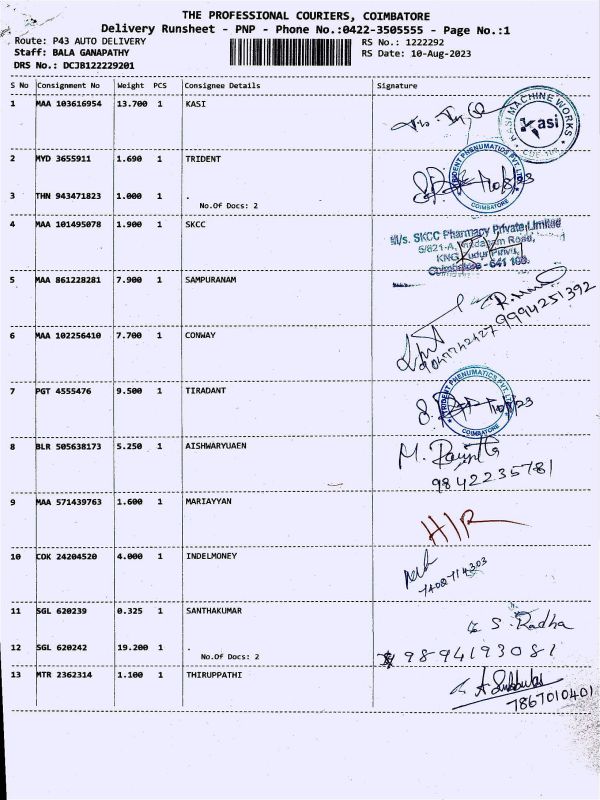 THE PROFESSIONAL COURIERS, COIMBATORE
Delivery Runsheet - PNP - Phone No.:0422-3505555 - Page No.:1
Route: P43 AUTO DELIVERY RS No.: 1222292
Staff: BALA GANAPATHY RS Date: 10-Aug-2023
DRS No.: DCJB122229201
S No Consignment No Weight PCS Consignee Details Signature
1 MAA 103616954 13.700 1 KASI
KASI MACHINE WORKS
Kasi
2 MYD 3655911 1.690 1 TRIDENT
TRIDENT PNEUMATICS PVT. LTD.
COIMBATORE
3 THN 943471823 1.000 1 .
No.Of Docs: 2
4 MAA 101495078 1.900 1 SKCC
M/s. SKCC Pharmacy Private Limited
5/821-A, Road,
KNG Pudur Pirivu,
Coimbatore - 641 108.
5 MAA 861228281 7.900 1 SAMPURANAM
9994251392
6 MAA 102256410 7.700 1 CONWAY
7 PGT 4555476 9.500 1 TIRADANT
TRIDENT PNEUMATICS PVT. LTD.
COIMBATORE
8 BLR 505638173 5.250 1 AISHWARYUAEN
9842235781
9 MAA 571439763 1.600 1 MARIAYYAN
H/R
10 COK 24204520 4.000 1 INDELMONEY
11 SGL 620239 0.325 1 SANTHAKUMAR
S. Radha
12 SGL 620242 19.200 1 .
No.Of Docs: 2
9894193081
13 MTR 2362314 1.100 1 THIRUPPATHI
7867010401